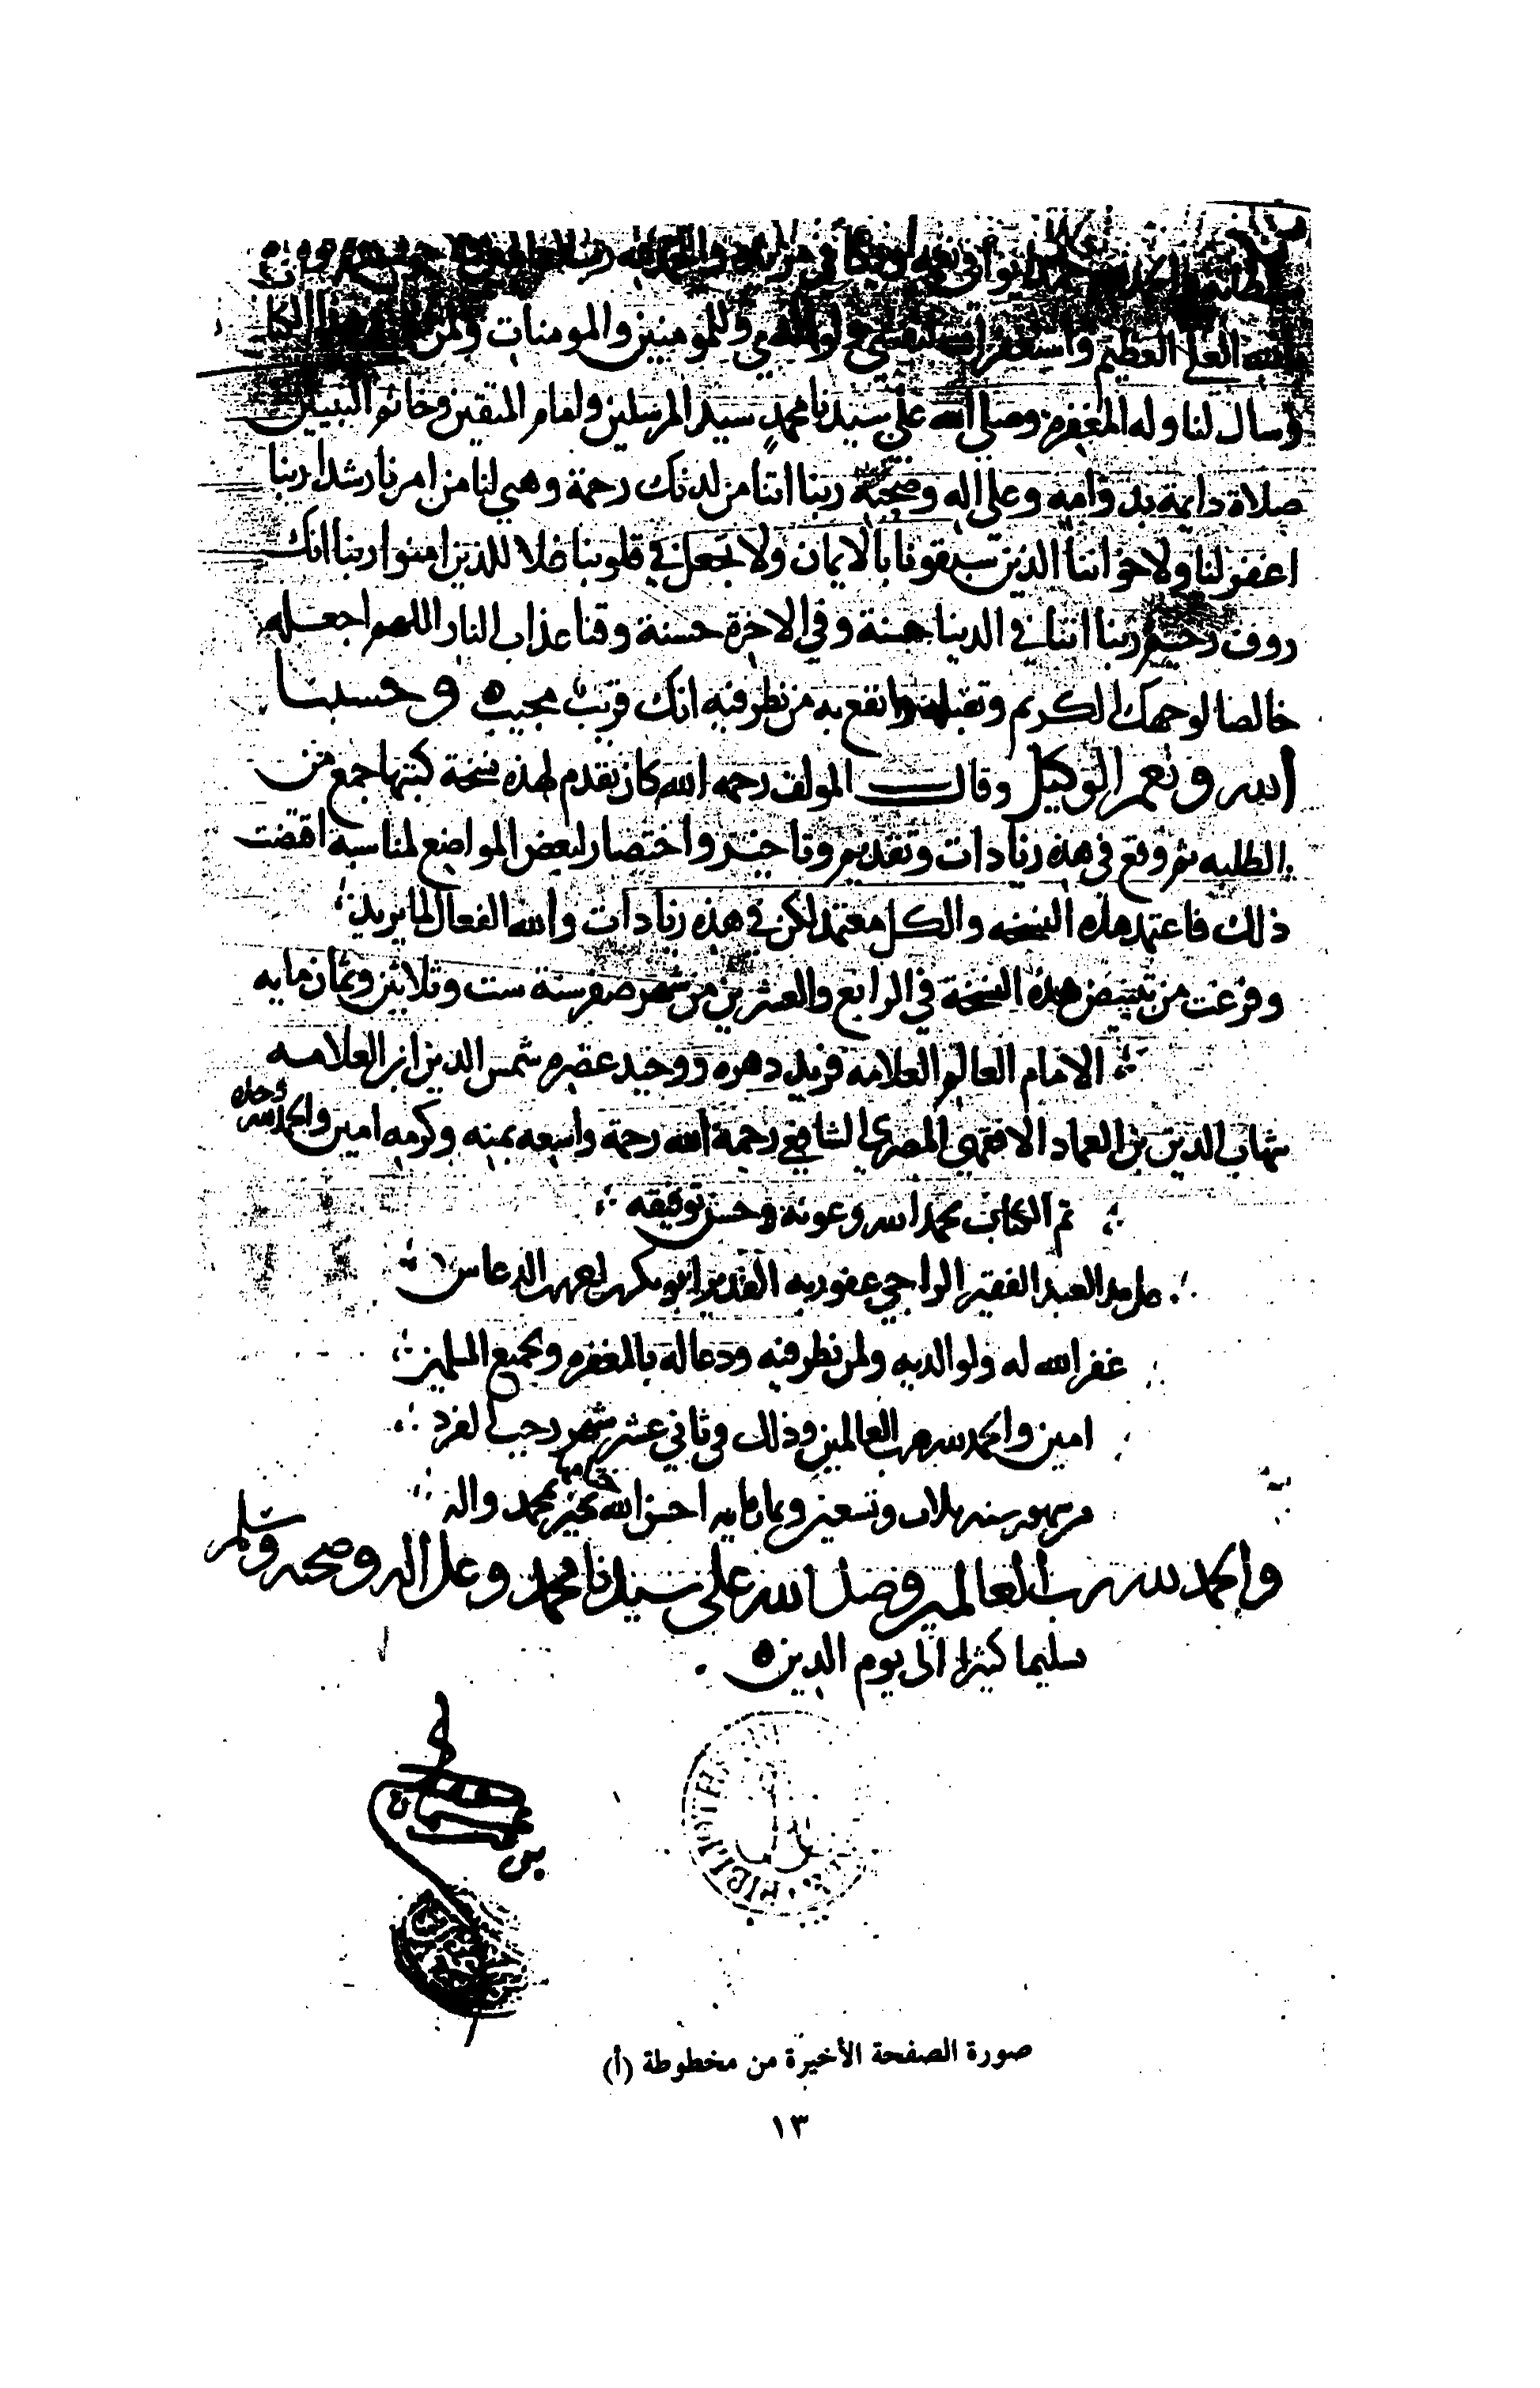 يوافي نعمه ويكافي مزيده والحمد لله رب العالمين
بالله العلي العظيم واستغفر الله لنفسي ولوالدي وللمومنين والمومنات ولمن
وسال لنا وله المغفره وصلى الله على سيدنا محمد سيد المرسلين وامام المتقين وخاتم النبيين
صلاة دايمة بدوامه وعلى اله وصحبه ربنا اتنا من لدنك رحمة وهيي لنا من امرنا رشدا ربنا
اغفر لنا ولاخواننا الذين سبقونا بالايمان ولا تجعل في قلوبنا غلا للذين امنوا ربنا انك
روف رحيم ربنا اتنا في الدينا حسنة وفي الاخرة حسنة وقنا عذاب النار اللهم اجعله
خالصا لوجهك الكريم وتقبله وانفع به من نظر فيه انك قريب مجيب ه وحسبنا
الله ونعم الوكيل وقال المولف رحمه الله كان تقدم لهذه نسخة كتبها جمع من
الطلبه ثم وقع في هذه زيادات وتقديم وتاخير واختصار لبعض المواضع لمناسبة اقتضت
ذلك فاعتمد هذه النسخه والكل معتمد لكن في هذه زيادات والله الفعال لما يريد
وفرغت من تبييض هذه النسخة في الرابع والعشرين من شهر صفر سنة ست وثلاثين وثمان مايه
الامام العالم العلامه فريد دهره ووحيد عصره شمس الدين ابن العلامه
شهاب الدين بن العماد الاقفهسي المصري الشافعي رحمة الله رحمة واسعه بمنه وكرمه امين والحمد لله وحده
تم الكتاب بحمد الله وعونه وحسن توفيقه
العبد الفقير الراجي عفو ربه القدير ابو بكر الدعاس
غفر الله له ولوالديه ولمن نظر فيه ودعا له بالمغفره ولجميع المسلمين
امين والحمد لله رب العالمين وذلك في ثاني عشر شهر رجب الفرد
من شهور سنه ثلاث وتسعين وثمانمايه احسن الله ختامها بخير بمحمد واله
والحمد لله رب العالمين وصلى الله على سيدنا محمد وعلى اله وصحبه وسلم
تسليما كثيرا الى يوم الدين ه
صورة الصفحة الأخيرة من مخطوطة (أ)
١٣